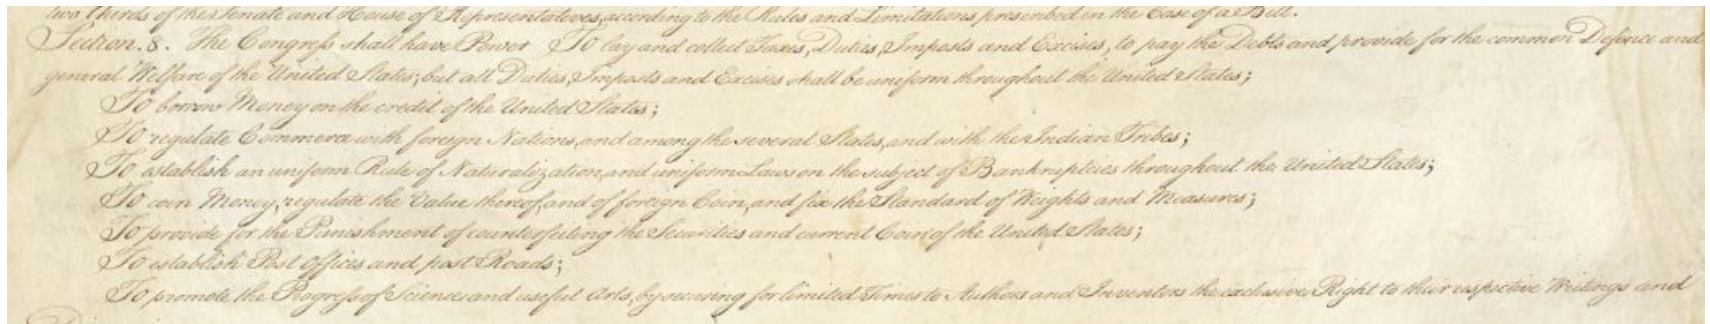 two thirds of the Senate and House of Representatives, according to the Rules and Limitations prescribed in the Case of a Bill.
Section. 8. The Congress shall have Power To lay and collect Taxes, Duties, Imposts and Excises, to pay the Debts and provide for the common Defence and
general Welfare of the United States; but all Duties, Imposts and Excises shall be uniform throughout the United States;
To borrow Money on the credit of the United States;
To regulate Commerce with foreign Nations, and among the several States, and with the Indian Tribes;
To establish an uniform Rule of Naturalization, and uniform Laws on the subject of Bankruptcies throughout the United States;
To coin Money, regulate the Value thereof, and of foreign Coin, and fix the Standard of Weights and Measures;
To provide for the Punishment of counterfeiting the Securities and current Coin of the United States;
To establish Post Offices and post Roads;
To promote the Progress of Science and useful Arts, by securing for limited Times to Authors and Inventors the exclusive Right to their respective Writings and